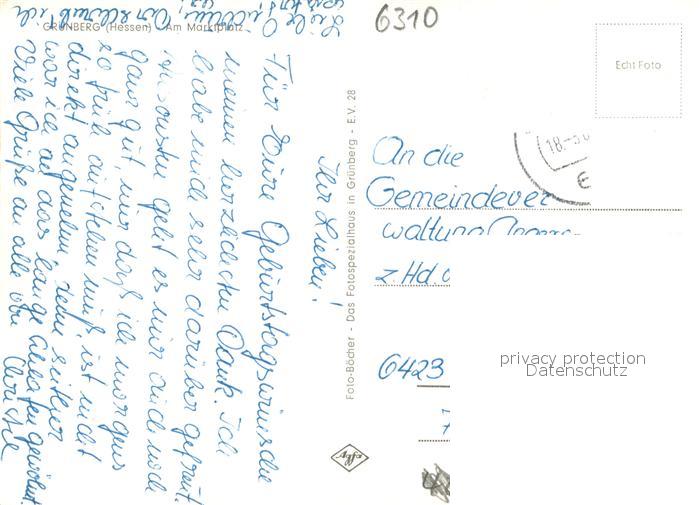 GRÜNBERG (Hessen) Am Marktplatz
Ihr Lieben!
Für Eure Geburtstagswünsche
meinen herzlichsten Dank. Ich
habe mich sehr darüber gefreut.
Ansonsten geht es mir auch noch
ganz gut, nur daß ich morgens
so früh aufstehen muß, ist nicht
direkt angenehm, denn seither
war ich das lange gewöhnt.
Viele Grüße an alle von
Christel
Foto-Böcher - Das Fotospezialhaus in Grünberg - E.V. 28
Agfa
6310
Echt Foto
18.
An die
Gemeindever
waltung
z. Hd.
6423
privacy protection
Datenschutz